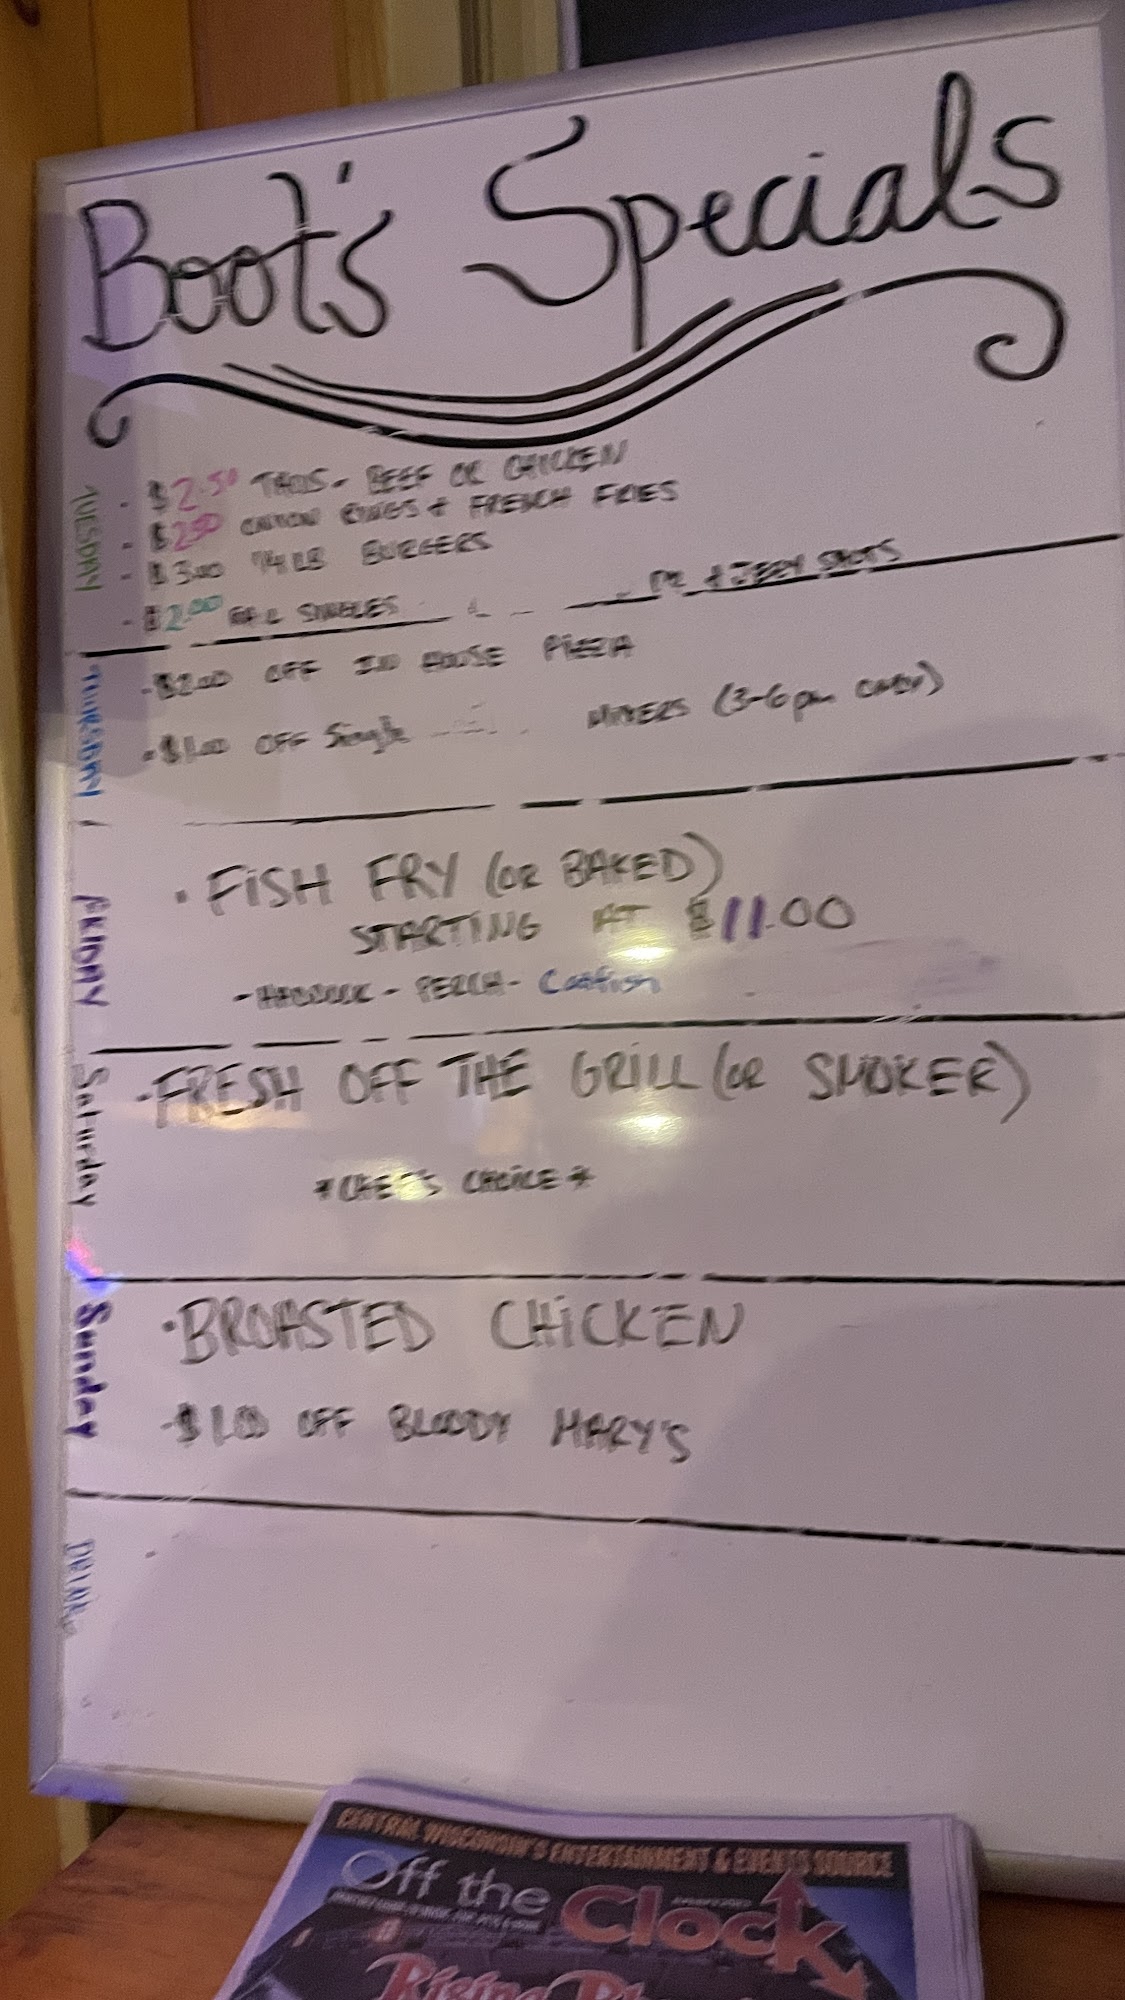 Boot's Specials
TUESDAY
- $2.50 TACOS - BEEF OR CHICKEN
- $2.50 ONION RINGS + FRENCH FRIES
- $3.00 1/4 LB BURGERS
- $2.00 RAIL SINGLES
+ JERRY SHOTS
THURSDAY
- $2.00 OFF IN HOUSE PIZZA
- $1.00 OFF Single MIXERS (3-6pm ONLY)
FRIDAY
• FISH FRY (OR BAKED)
STARTING AT $11.00
- HADDOCK - PERCH - Catfish
Saturday
- FRESH OFF THE GRILL (OR SMOKER)
* CHEF'S CHOICE *
Sunday
• BROASTED CHICKEN
- $1.00 OFF BLOODY MARY'S
DRINKS
CENTRAL WISCONSIN'S ENTERTAINMENT & EVENTS SOURCE
Off the Clock
Rising